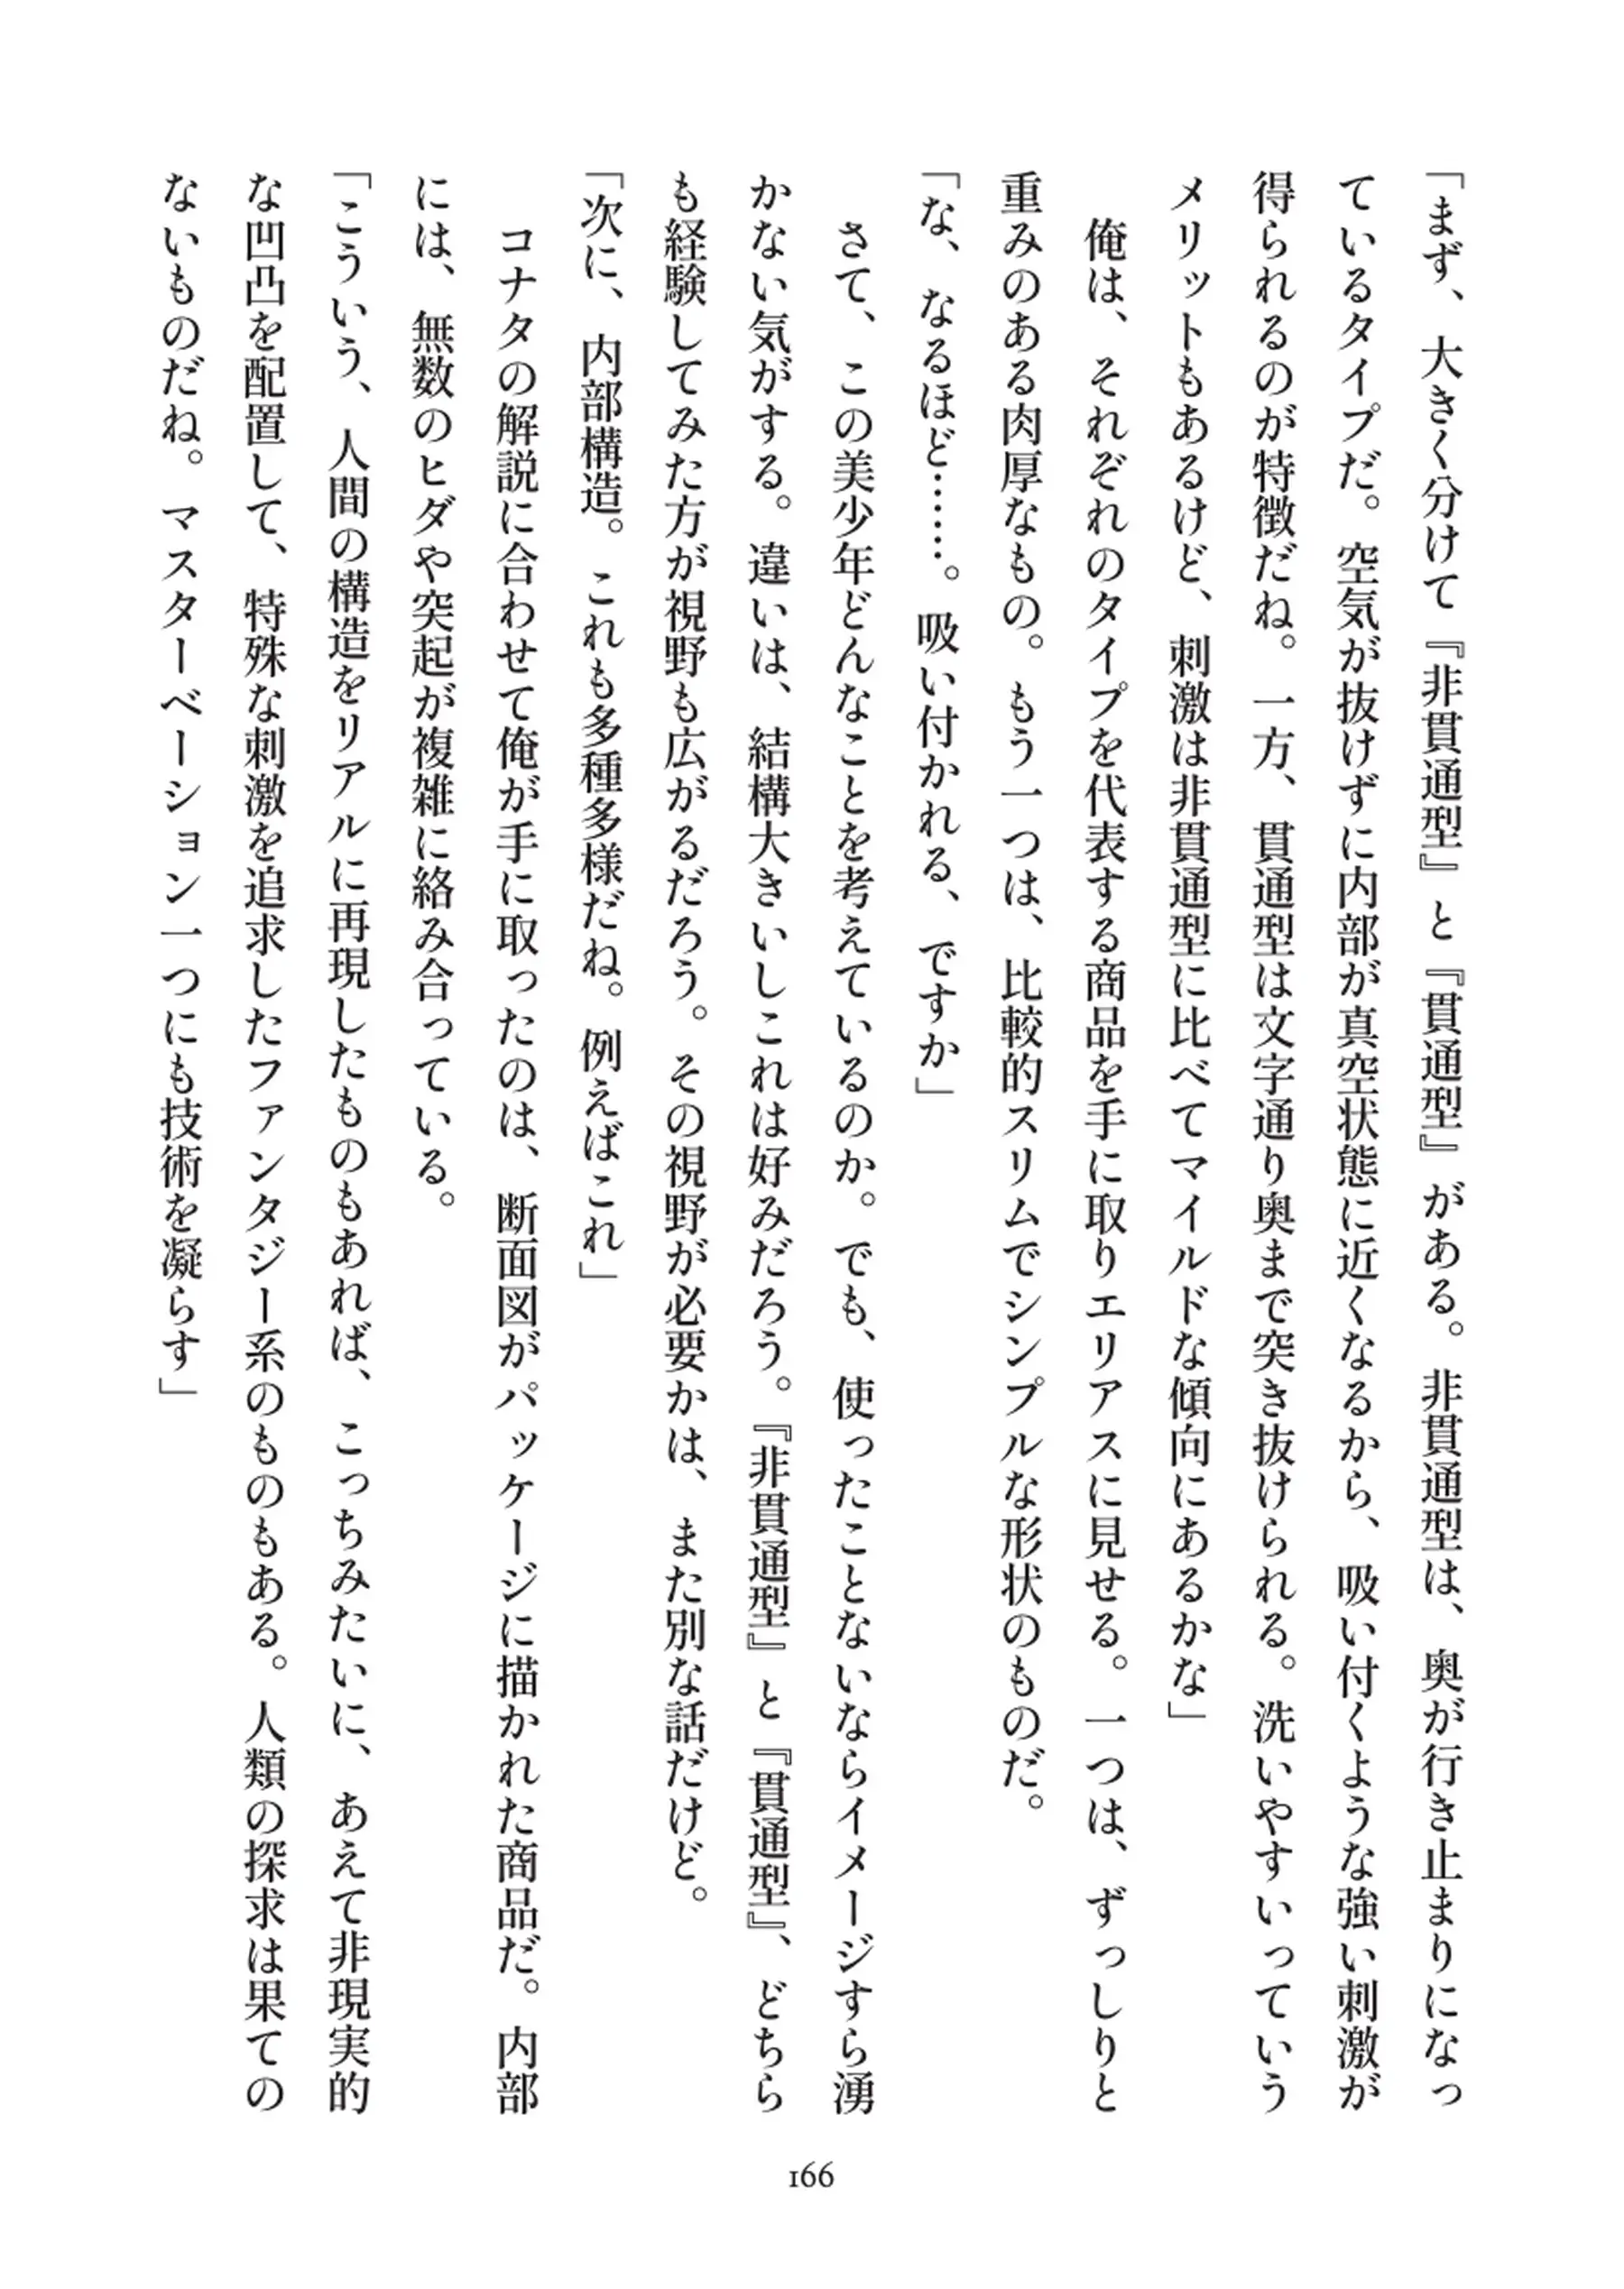 「まず、大きく分けて『非貫通型』と『貫通型』がある。非貫通型は、奥が行き止まりになっ
ているタイプだ。空気が抜けずに内部が真空状態に近くなるから、吸い付くような強い刺激が
得られるのが特徴だね。一方、貫通型は文字通り奥まで突き抜けられる。洗いやすいっていう
メリットもあるけど、刺激は非貫通型に比べてマイルドな傾向にあるかな」
俺は、それぞれのタイプを代表する商品を手に取りエリアスに見せる。一つは、ずっしりと
重みのある肉厚なもの。もう一つは、比較的スリムでシンプルな形状のものだ。
「な、なるほど……。吸い付かれる、ですか」
さて、この美少年どんなことを考えているのか。でも、使ったことないならイメージすら湧
かない気がする。違いは、結構大きいしこれは好みだろう。『非貫通型』と『貫通型』、どちら
も経験してみた方が視野も広がるだろう。その視野が必要かは、また別な話だけど。
「次に、内部構造。これも多種多様だね。例えばこれ」
コナタの解説に合わせて俺が手に取ったのは、断面図がパッケージに描かれた商品だ。内部
には、無数のヒダや突起が複雑に絡み合っている。
「こういう、人間の構造をリアルに再現したものもあれば、こっちみたいに、あえて非現実的
な凹凸を配置して、特殊な刺激を追求したファンタジー系のものもある。人類の探求は果ての
ないものだね。マスターベーション一つにも技術を凝らす」
166